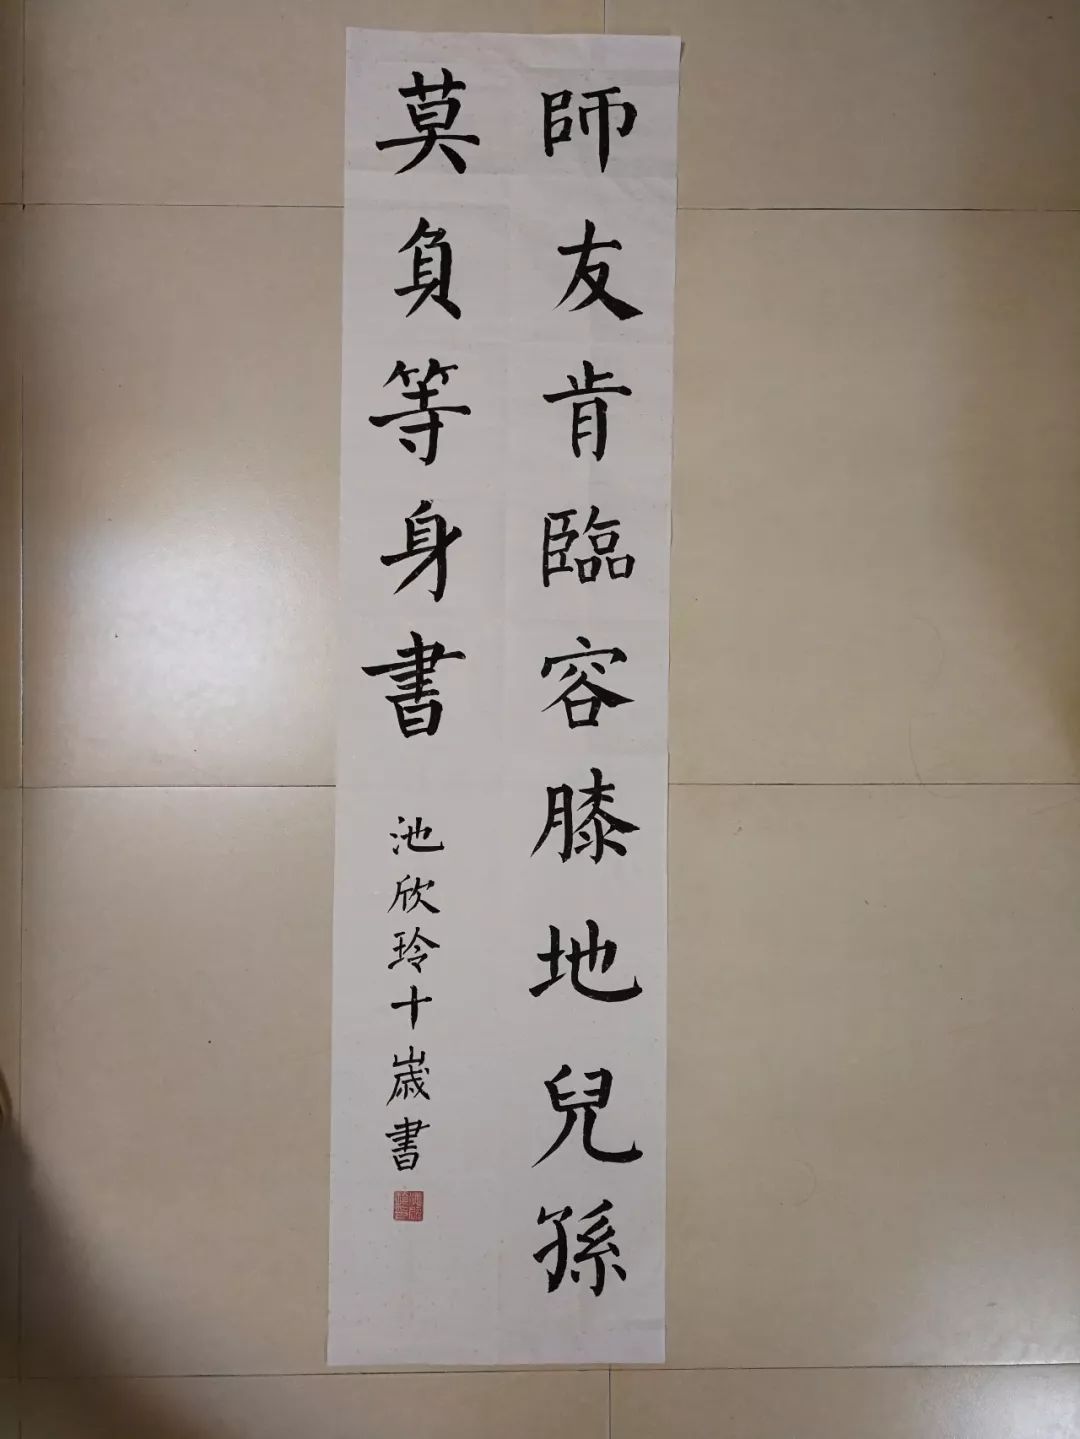 師友肯臨容膝地兒孫
莫負等身書
池欣玲十歲書